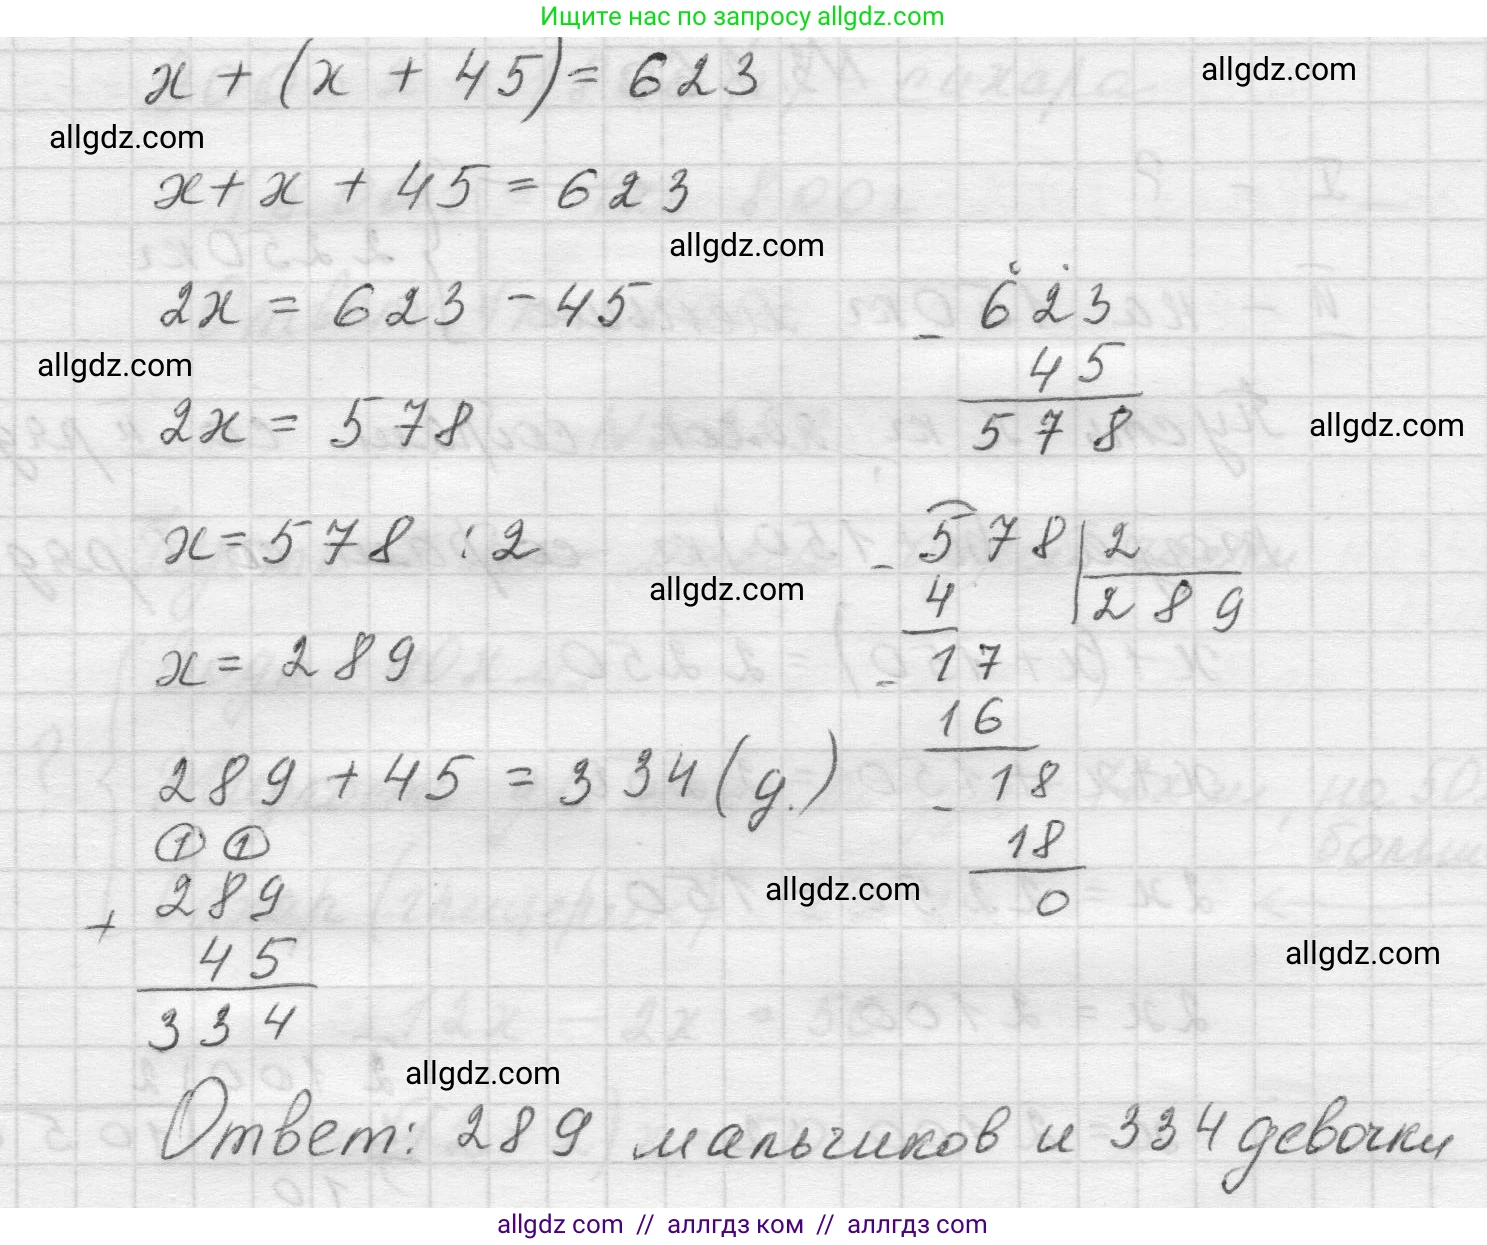 Ищите нас по запросу allgdz.com
x + (x + 45) = 623
allgdz.com
allgdz.com
x + x + 45 = 623
allgdz.com
2x = 623 - 45
- 623
45
578
allgdz.com
2x = 578
allgdz.com
x = 578 : 2
- 578 | 2
289
4
allgdz.com
- 17
16
x = 289
- 18
18
0
289 + 45 = 334 (д.)
1 1
+ 289
45
334
allgdz.com
allgdz.com
allgdz.com
Ответ: 289 мальчиков и 334 девочки
allgdz com // аллгдз ком // аллгдз com